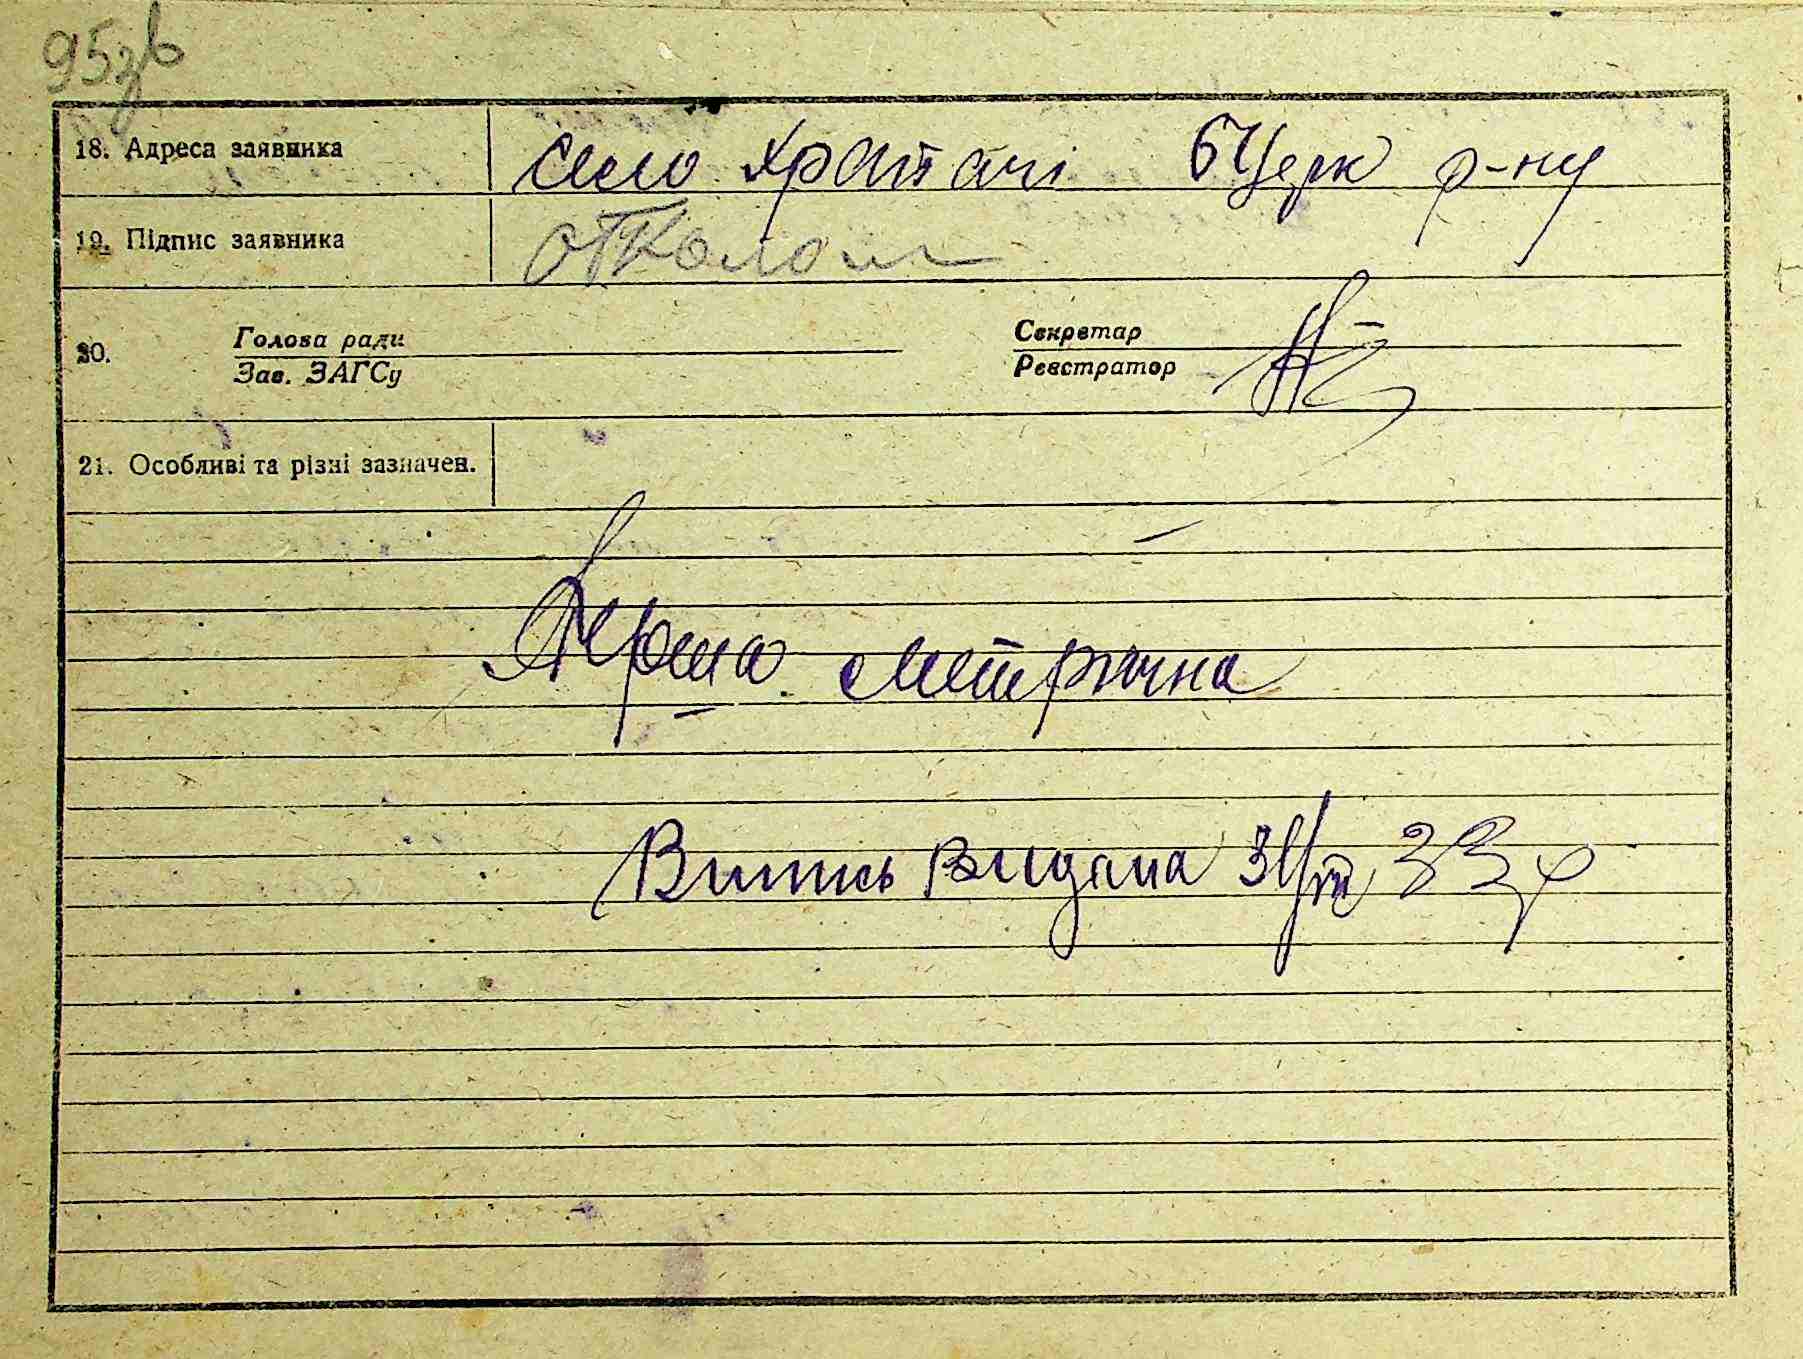 95зв
18. Адреса заявника село Храпачі БЦерк р-ну
19. Підпис заявника
20. Голова ради Секретар
Зав. ЗАГСу Реєстратор
21. Особливі та різні зазначен.
Перша метрична
Випись видана 31/VIII 33 р